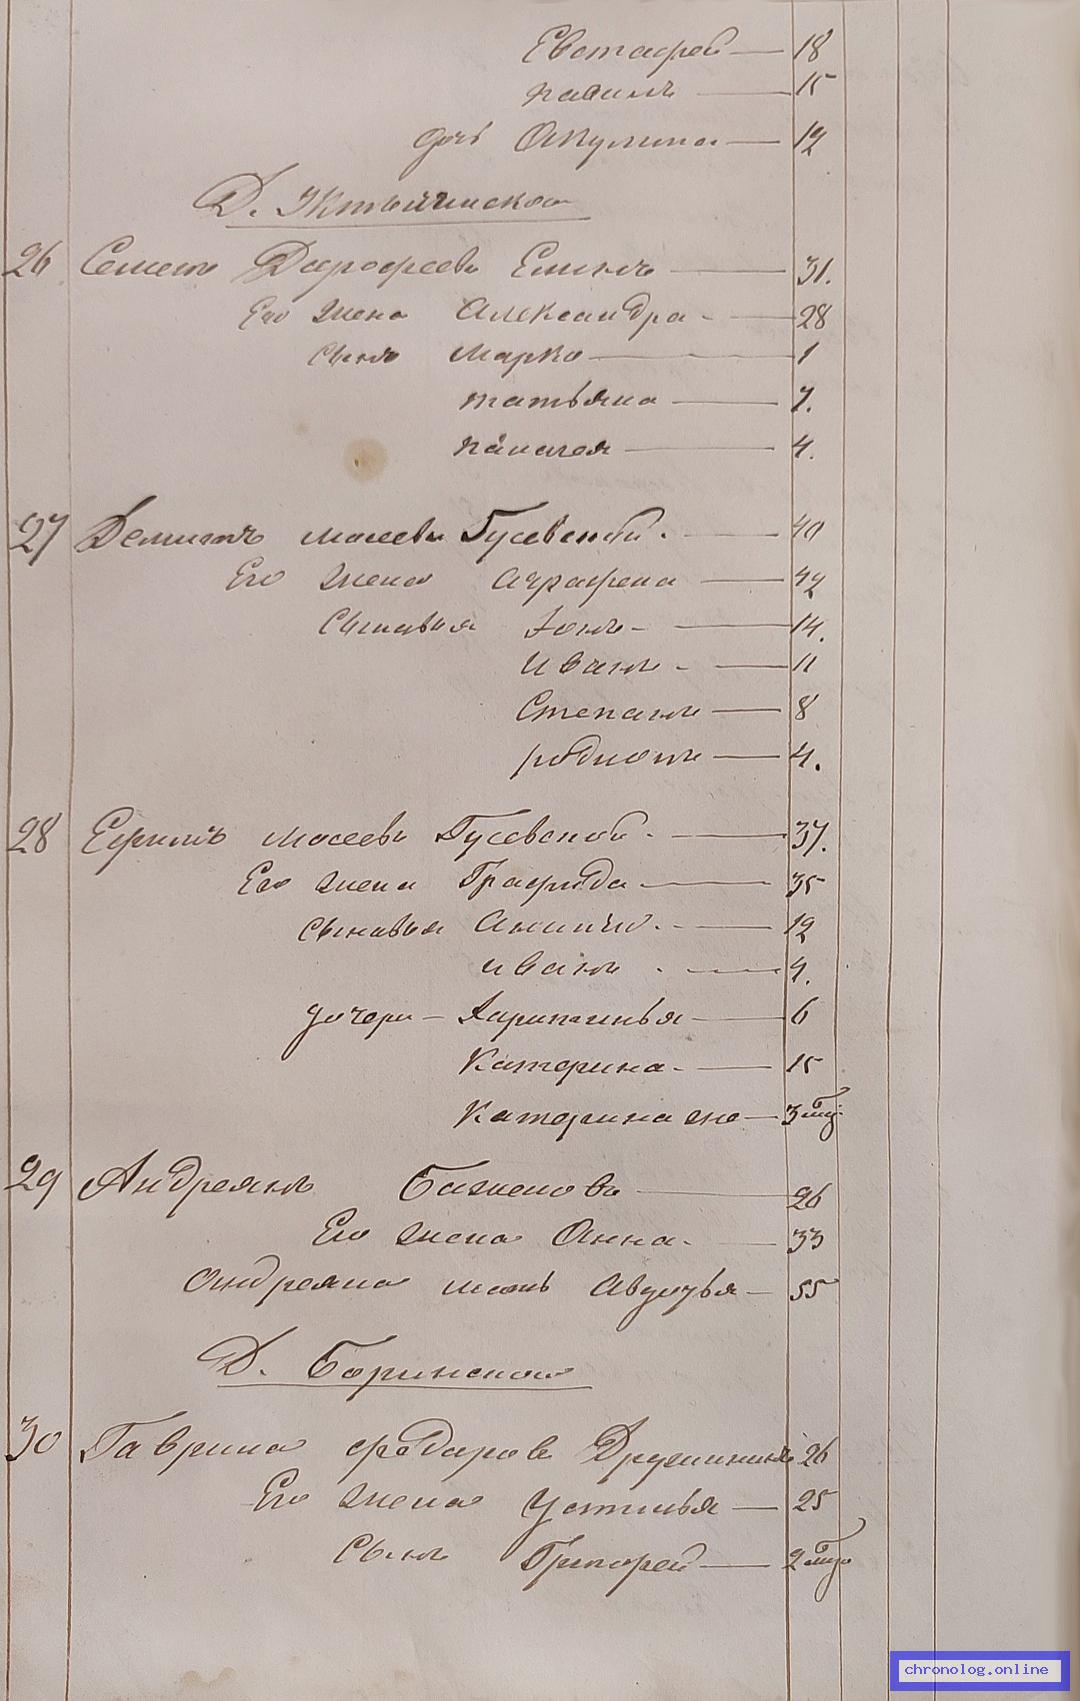 Евстафей — 18
павилъ — 15
дочь Окулина — 12
Д. Иктычинская
26 Семенъ Дарофеевъ Елинъ — 31.
Его жена Александра — 28
сынъ Марко — 1
татьяна — 7.
палагея — 4.
27 Демианъ мосеевъ Гусевской. — 40
Его жена аграфена — 42
Сыновья Іонъ — 14.
иванъ — 11
Степанъ — 8
родионъ — 4.
28 Ефимъ мосеевъ Гусевской. — 37.
Его жена Графида — 35
сыновья Ананий. — 12
иванъ — 4.
дочери — Харитинья — 6
Катерина. — 15
Катерина же — 3 мц
29 Андреянъ Баженовъ — 26
Его жена Анна. — 33
Андреяна мать Авдотья — 55
Д. Боринская
30 Гаврила федаровъ Дружининъ 26
Его жена Устинья — 25
Сынъ Григорей — 2 мц
chronolog.online